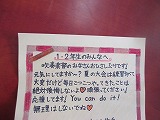 1・2年生のみんなへ。
吹奏楽部のみなさんおひさしぶりです!
元気にしてますか〜? 夏の大会は練習的に
大変だけど毎日こつこつやってきたことは
絶対後悔しないよ♥頑張ってください!
応援してます! You can do it!
無理はしないでね♥